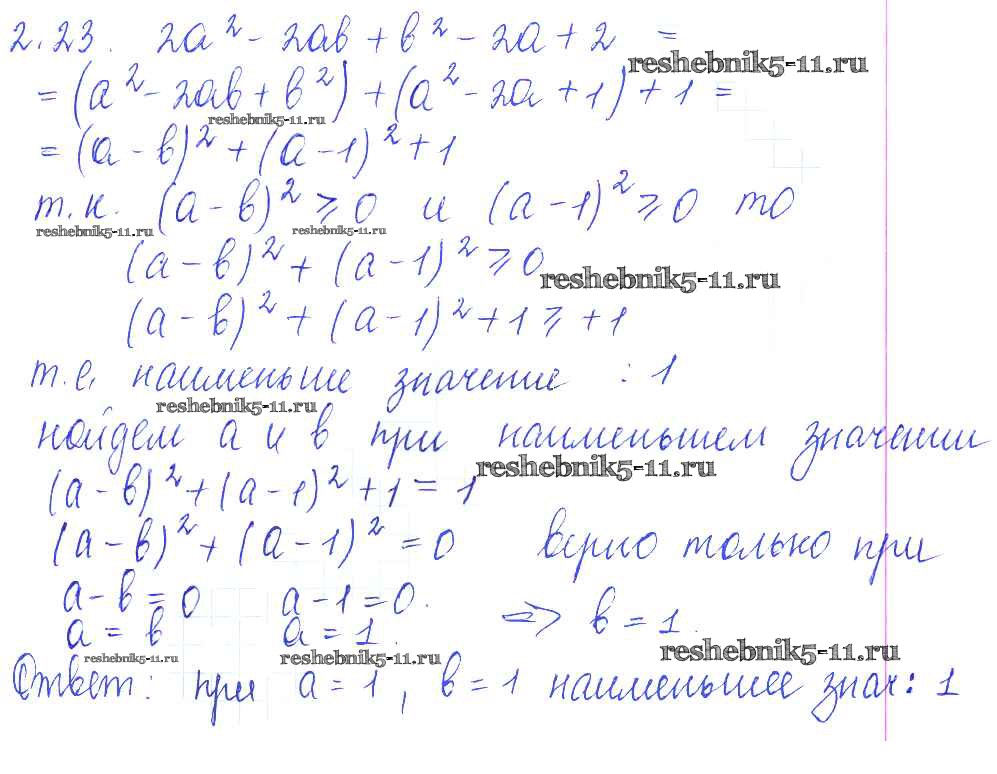 2.23. 2a² - 2ab + b² - 2a + 2 =
reshebnik5-11.ru
= (a² - 2ab + b²) + (a² - 2a + 1) + 1 =
reshebnik5-11.ru
= (a - b)² + (a - 1)² + 1
т.к. (a - b)² ⩾ 0 и (a - 1)² ⩾ 0 то
reshebnik5-11.ru reshebnik5-11.ru
(a - b)² + (a - 1)² ⩾ 0
reshebnik5-11.ru
(a - b)² + (a - 1)² + 1 ⩾ +1
т.е. наименьше значение : 1
reshebnik5-11.ru
найдем a и b при наименьшем значении
reshebnik5-11.ru
(a - b)² + (a - 1)² + 1 = 1
(a - b)² + (a - 1)² = 0 верно только при
a - b = 0 a - 1 = 0.
a = b a = 1. => b = 1.
reshebnik5-11.ru reshebnik5-11.ru reshebnik5-11.ru
Ответ: при a = 1, b = 1 наименьшее знач: 1